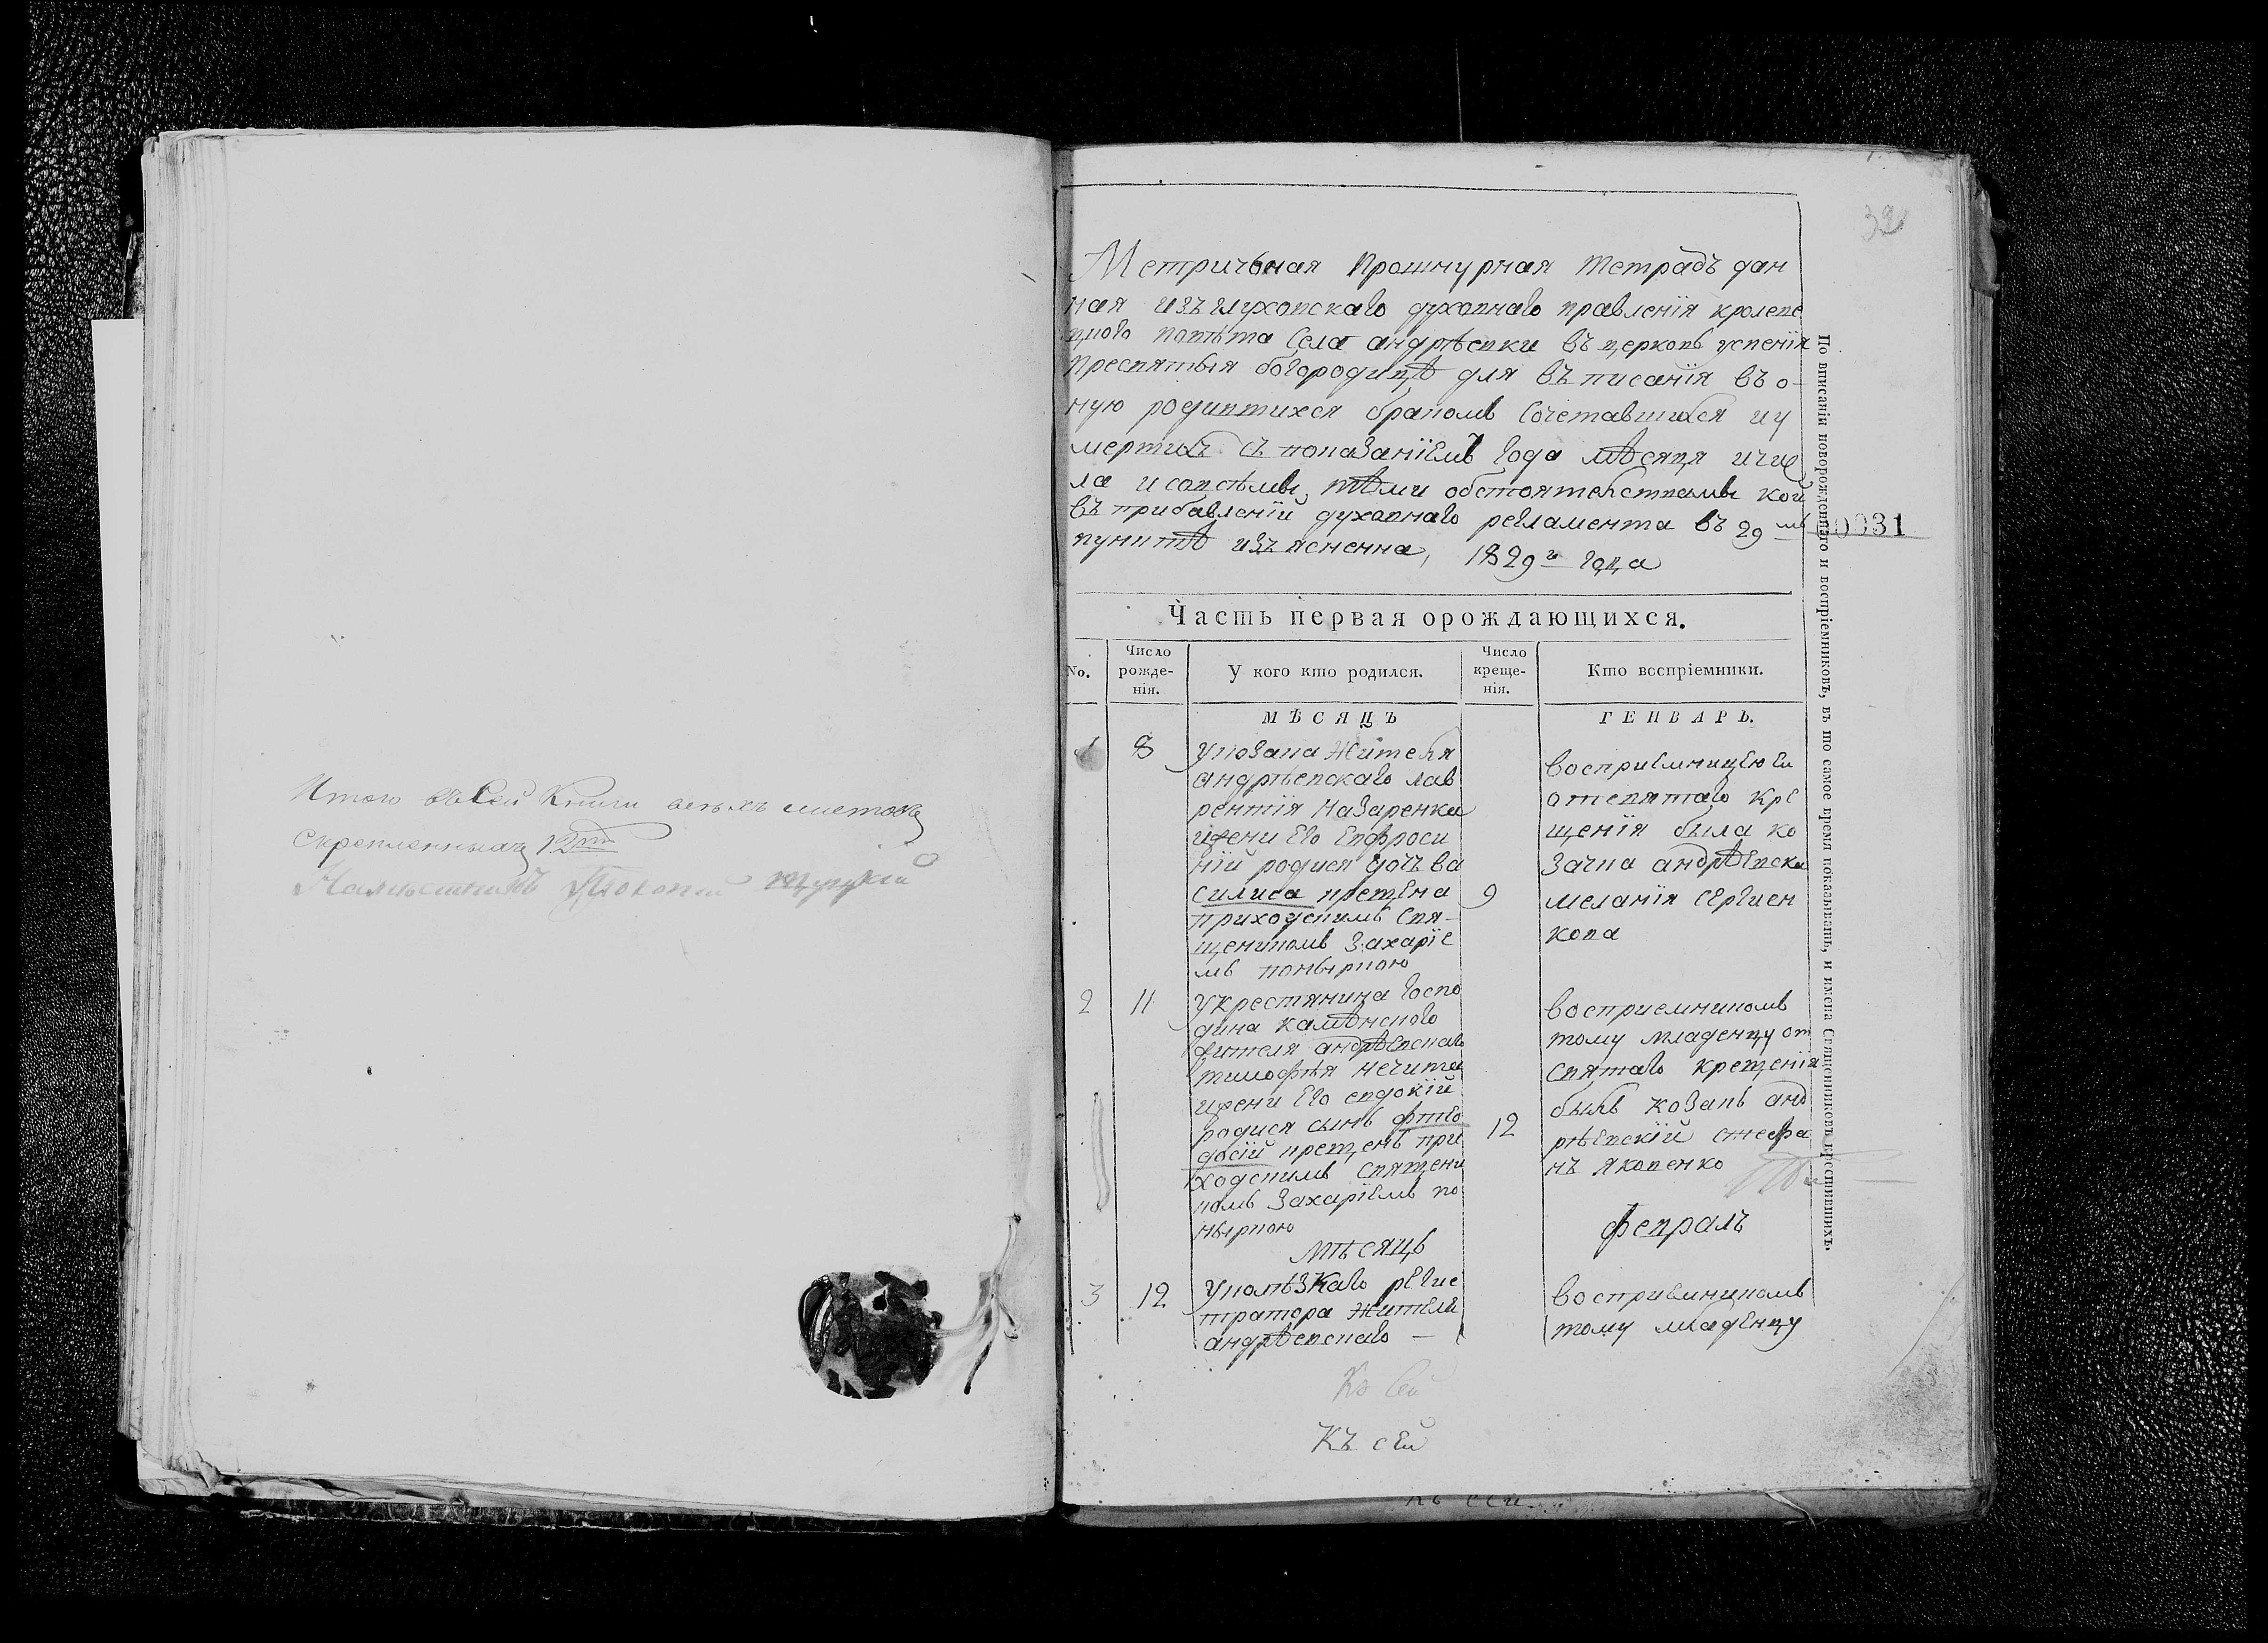 Итого въ Сей Книги всехъ листовъ
скрепленныхъ 12ть
Намѣстникъ
32
Метричъная Прошнурная Тетрадь дан
ная изъ глуховскаго духовнаго правленія кролеве
цкого повѣта Села андрѣевки въ церковь успенія
Пресвятыя богородицѣ для въписанія въ о-
ную родившихся бракомъ Сочетавшихся и у
мершихъ съ показаніемъ года мѣсяца и чис
ла и совсѣмы тѣми обстоятелствамы кои
въ прибавленіи духовнаго регламента въ 29 мъ
пунктѣ изъясненна, 1829 г года
00031
Часть первая орождающихся.
No.
Число рожде-нія.
У кого кто родился.
Число креще-нія.
Кто воспріемники.
МѢСЯЦЪ
ГЕНВАРЬ.
1
8
У козака Жителя
андрѣевскаго лав
рентія Назаренка
и жени Его Евфроси
ній родися дочъ Ва
силиса крещена
приходскимъ Свя-
щенникомъ Захаріе
мъ поныркою
9
восприемницею Ея
от святаго кре
щенія была ко
зачка андрѣевска
меланія Сергиен
кова
2
11
У крестянина госпо
дина камѣнского
Жителя андрѣевскаго
тимофѣя нечита
и жени Его евдокій
родися сынъ фтео
досій крещенъ при
ходскимъ Священи
комъ Захаріемъ по
ныркою
12
восприемникомъ
тому младенцу от
святаго крещенія
былъ козакъ анд
рѣевскій стефа
нъ яковенко
Мѣсяцъ
февраль
3
12
У колѣзкаго регис
тратора Жителя
андрѣевскаго —
восприемникомъ
тому младенцу
Къ сей
Къ сей
къ сей
По вписаніи новорожденнаго и воспріемниковъ, въ то самое время показывать, и имена Священниковъ крестившихъ.